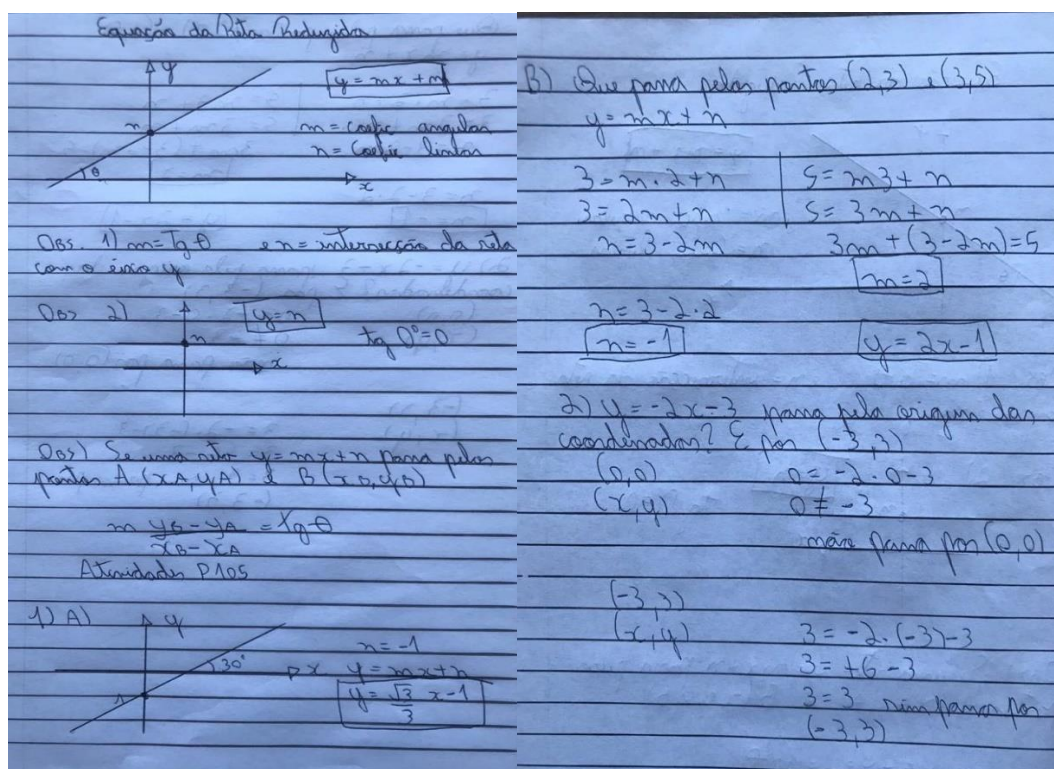 Equação da Reta Reduzida
y
y = mx + n
n
m = coefic angular
n = Coefic linear
θ
x
OBS. 1) m = Tg θ e n = intersecção da reta
com o eixo y
OBS 2)
y = n
n
tg 0° = 0
x
OBS) Se uma reta y = mx + n passa pelos
pontos A (xA, yA) e B (xB, yB)
m yB - yA = tg θ
xB - xA
Atividades P105
1) A)
y
n = -1
30°
x
y = mx + n
y = √3/3 x - 1
B) Que passa pelos pontos (2,3) e (3,5)
y = mx + n
3 = m . 2 + n
5 = m3 + n
3 = 2m + n
5 = 3m + n
n = 3 - 2m
3m + (3 - 2m) = 5
m = 2
n = 3 - 2 . 2
n = -1
y = 2x - 1
2) y = -2x - 3 passa pela origem das
coordenadas? E por (-3, 3)
(0,0)
0 = -2 . 0 - 3
(x, y)
0 ≠ -3
não passa por (0,0)
(-3, 3)
(x, y)
3 = -2 . (-3) - 3
3 = +6 - 3
3 = 3 sim passa por
(-3,3)